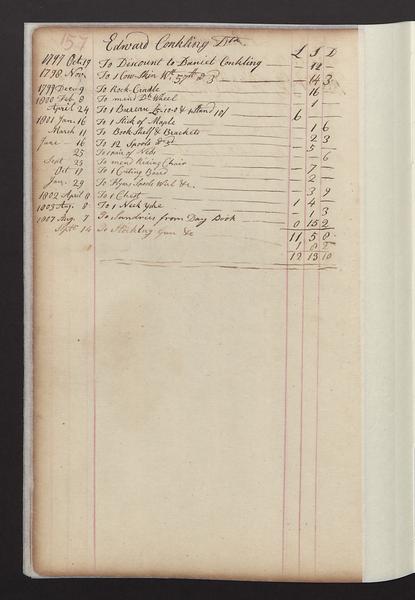 157
Edward Conkling Dtr. £ S D
1797 Oct. 19 To Discount to Daniel Conkling — 12 —
1798 Nov. To 1 Cow Skin Wt. — 14 3
1799 Dec. 9 To Rock Cradle — 16
1800 Feb. 8 To mend Do. Wheel — 1
April 24 To 1 Bureau & Stand 10/ 6
1801 Jan. 16 To 1 Stick of Maple — 1 6
March 11 To Book Shelf & Brackets — 2 3
June 16 To 12 Spools — 5 —
25 To pair of — 6
Sept 25 To mend Riding Chair — 7 —
Oct 19 To 1 Cutting Board — 2 —
Jan. 29 To Flyers Spools &c. — 3 9
1802 April 8 To 1 Chest 1 4 —
1803 Aug. 8 To 1 Neck Yoke — 1 3
1807 Aug. 7 To Sundries from Day Book — 0 15 2
Sept. 14 To Stocking Gun &c 11 5 8
1 8 2
12 13 10